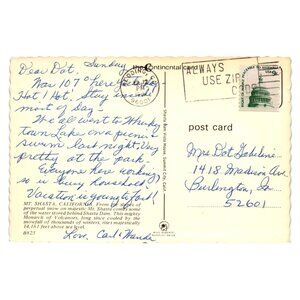 the Continental card
Sunday
Dear Dot,
Was 107° here
Hot! Hot! Stay inside
most of day.
We all went to Whiskey
town Lake on a picnic
swim last night. Very
pretty at the park.
Everyone here working
so is busy household
Vacation is going to fast!
MT. SHASTA, CALIFORNIA
perpetual snow on majestic Mt. Shasta comes some
of the water stored behind Shasta Dam. This mighty
Monarch of Volcanoes, long since cooled by the
snowfall of thousands of winters, rises majestically
14,161 feet above sea level.
Love, Carl &
REDDING
PM
96001
ALWAYS
USE ZIP
CODE
post card
Mrs Dot
1418 Madison Ave
Burlington, Ia
52601